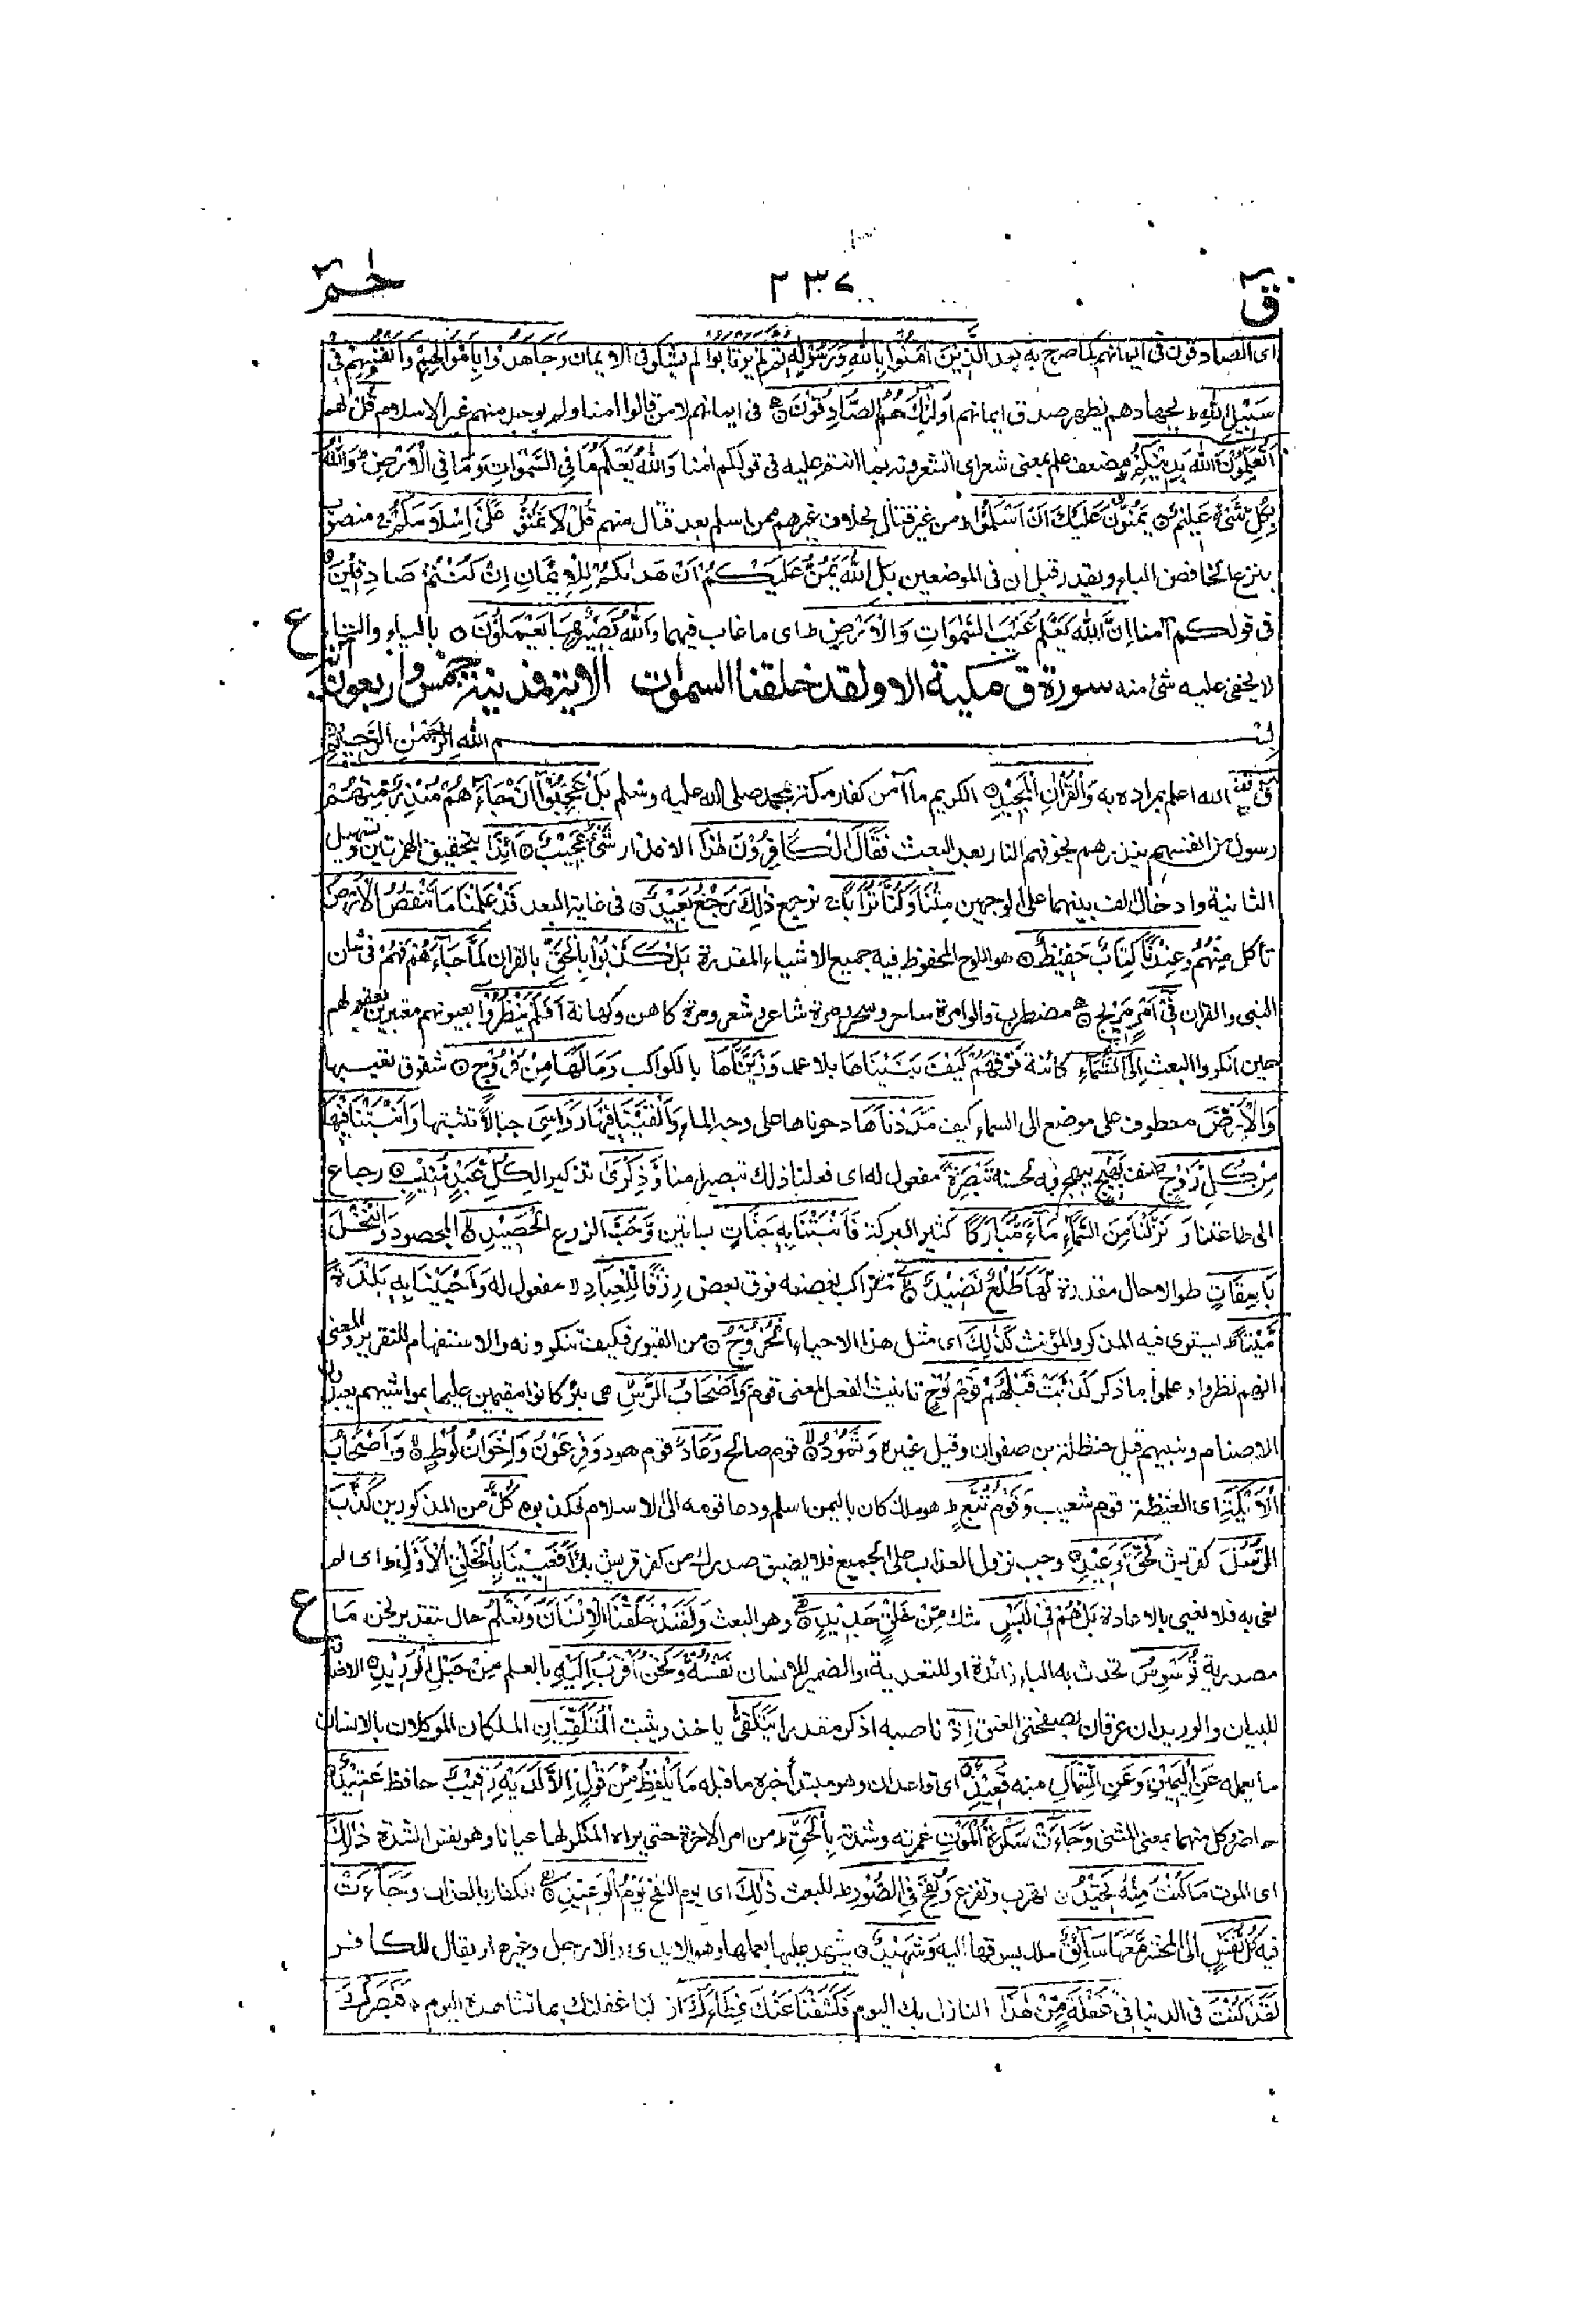 قۤ ٢٣٧ حٰمۤ
اى الصادقون فى ايمانهم كما صرح به بعد الَّذِيْنَ اٰمَنُوْا بِاللّٰهِ وَرَسُوْلِهٖ ثُمَّ لَمْ يَرْتَابُوْا لم يشكوا فى الايمان وَجَاهَدُوْا بِاَمْوَالِهِمْ وَاَنْفُسِهِمْ فِيْ
سَبِيْلِ اللّٰهِ ط بجهادهم يظهر صدق ايمانهم اُولٰٓئِكَ هُمُ الصَّادِقُوْنَ ۝ فى ايمانهم لا من قالوا امنا ولم يوجد منهم غير الاسلام قُلْ لهم
اَتُعَلِّمُوْنَ اللّٰهَ بِدِيْنِكُمْ مضعف علم بمعنى شعر اى اتشعرونه بما انتم عليه فى قولكم اٰمنا وَاللّٰهُ يَعْلَمُ مَا فِي السَّمٰوَاتِ وَمَا فِي الْاَرْضِ ط وَاللّٰهُ
بِكُلِّ شَيْءٍ عَلِيْمٌ ۝ يَمُنُّوْنَ عَلَيْكَ اَنْ اَسْلَمُوْا ط من غير قتال بخلاف غيرهم ممن اسلم بعد قتال منهم قُلْ لَا تَمُنُّوْا عَلَيَّ اِسْلَامَكُمْ ج منصوب
بنزع الخافض الباء ويقدر قبل ان فى الموضعين بَلِ اللّٰهُ يَمُنُّ عَلَيْكُمْ اَنْ هَدٰىكُمْ لِلْاِيْمَانِ اِنْ كُنْتُمْ صَادِقِيْنَ ۝
فى قولكم آمنا اِنَّ اللّٰهَ يَعْلَمُ غَيْبَ السَّمٰوَاتِ وَالْاَرْضِ ط اى ما غاب فيهما وَاللّٰهُ بَصِيْرٌ بِمَا يَعْمَلُوْنَ ۝ بالياء والتاء ع
لا يخفى عليه شئ منه سورة ق مكية الا ولقد خلقنا السمٰوٰت الاية فمدنية خمس واربعون اٰية
بِسْـــــــمِ اللّٰهِ الرَّحْمٰنِ الرَّحِيْمِ
قۤ الله اعلم بمراده به وَالْقُرْاٰنِ الْمَجِيْدِ ۝ الكريم ما آمن كفار مكة بمحمد صلى الله عليه وسلم بَلْ عَجِبُوْا اَنْ جَآءَهُمْ مُنْذِرٌ مِنْهُمْ
رسول من انفسهم ينذرهم يخوفهم النار بعد البعث فَقَالَ الْكَافِرُوْنَ هٰذَا الانذار شَيْءٌ عَجِيْبٌ ۝ اَئِذَا بتحقيق الهمزتين وتسهيل
الثانية وادخال الف بينهما على الوجهين مِتْنَا وَكُنَّا تُرَابًا ج نرجع ذٰلِكَ رَجْعٌ بَعِيْدٌ ۝ فى غاية البعد قَدْ عَلِمْنَا مَا تَنْقُصُ الْاَرْضُ
تأكل مِنْهُمْ وَعِنْدَنَا كِتَابٌ حَفِيْظٌ ۝ هو اللوح المحفوظ فيه جميع الاشياء المقدرة بَلْ كَذَّبُوْا بِالْحَقِّ بالقران لَمَّا جَآءَهُمْ فَهُمْ فى شان
النبى والقران فِيْ اَمْرٍ مَرِيْجٍ ۝ مضطرب قالوا مرة ساحر وسحر ومرة شاعر وشعر ومرة كاهن وكهانة اَفَلَمْ يَنْظُرُوْا بعيونهم معتبرين بعقولهم
حين انكروا البعث اِلَى السَّمَآءِ كائنة فَوْقَهُمْ كَيْفَ بَنَيْنَاهَا بلا عمد وَزَيَّنَّاهَا بالكواكب وَمَا لَهَا مِنْ فُرُوْجٍ ۝ شقوق تعيبها
وَالْاَرْضَ معطوف على موضع الى السماء كيف مَدَدْنَاهَا دحوناها على وجه الماء وَاَلْقَيْنَا فِيْهَا رَوَاسِيَ جبالا تثبتها وَاَنْبَتْنَا فِيْهَا
مِنْ كُلِّ زَوْجٍ صنف بَهِيْجٍ يبهج به لحسنه تَبْصِرَةً مفعول له اى فعلنا ذلك تبصيرا منا وَّذِكْرٰى تذكيرا لِكُلِّ عَبْدٍ مُّنِيْبٍ ۝ رجاع
الى طاعتنا وَنَزَّلْنَا مِنَ السَّمَآءِ مَآءً مُّبَارَكًا كثير البركة فَاَنْبَتْنَا بِهٖ جَنّٰتٍ بساتين وَّحَبَّ الزرع الْحَصِيْدِ ۝ المحصود وَالنَّخْلَ
بَاسِقَاتٍ طوالا حال مقدرة لَّهَا طَلْعٌ نَضِيْدٌ ۝ متراكب بعضه فوق بعض رِزْقًا لِّلْعِبَادِ لا مفعول له وَاَحْيَيْنَا بِهٖ بَلْدَةً
مَّيْتًا ط يستوى فيه المذكر والمؤنث كَذٰلِكَ اى مثل هذا الاحياء الْخُرُوْجُ ۝ من القبور فكيف تنكرونه والاستفهام للتقرير والمعنى
انهم نظروا وعلموا ما ذكر كَذَّبَتْ قَبْلَهُمْ قَوْمُ نُوْحٍ تانيث الفعل لمعنى قوم وَّاَصْحَابُ الرَّسِّ هى بئر كانوا مقيمين عليها بمواشيهم يعبدون
الاصنام ونبيهم قيل حنظلة بن صفوان وقيل غيره وَثَمُوْدُ ۝ قوم صالح وَعَادٌ قوم هود وَفِرْعَوْنُ وَاِخْوَانُ لُوْطٍ ۝ وَاَصْحَابُ
الْاَيْكَةِ اى الغيظة قوم شعيب وَقَوْمُ تُبَّعٍ ط هو ملك كان باليمن اسلم ودعا قومه الى الاسلام فكذبوه كُلٌّ من المذكورين كَذَّبَ
الرُّسُلَ كقريش فَحَقَّ وَعِيْدِ ۝ وجب نزول العذاب على الجميع فلا يضيق صدرك من كفر قريش بك اَفَعَيِيْنَا بِالْخَلْقِ الْاَوَّلِ ط اى لم
نعى به فلا نعيى بالاعادة بَلْ هُمْ فِيْ لَبْسٍ شك مِّنْ خَلْقٍ جَدِيْدٍ ۝ وهو البعث وَلَقَدْ خَلَقْنَا الْاِنْسَانَ وَنَعْلَمُ حال بتقدير نحن مَا ع
مصدرية تُوَسْوِسُ تحدث بِهٖ الباء زائدة او للتعدية والضمير للانسان نَفْسُهٗ وَنَحْنُ اَقْرَبُ اِلَيْهِ بالعلم مِنْ حَبْلِ الْوَرِيْدِ ۝ الاضافة
للبيان والوريدان عرقان بصفحتى العنق اِذْ ناصبه اذكر مقدرا يَتَلَقَّى ياخذ ويثبت الْمُتَلَقِّيَانِ الملكان الموكلان بالانسان
ما يعمله عَنِ الْيَمِيْنِ وَعَنِ الشِّمَالِ منه قَعِيْدٌ ۝ اى قاعدان وهو مبتدأ خبره ما قبله مَا يَلْفِظُ مِنْ قَوْلٍ اِلَّا لَدَيْهِ رَقِيْبٌ حافظ عَتِيْدٌ ۝
حاضر وكل منهما بمعنى المثنى وَجَاءَتْ سَكْرَةُ الْمَوْتِ غمرته وشدته بِالْحَقِّ ط من امر الاخرة حتى يراه المنكر لها عيانا وهو نفس الشدة ذٰلِكَ
اى الموت مَا كُنْتَ مِنْهُ تَحِيْدُ ۝ تهرب وتفزع وَنُفِخَ فِي الصُّوْرِ ط للبعث ذٰلِكَ اى يوم النفخ يَوْمُ الْوَعِيْدِ ۝ للكفار بالعذاب وَجَاءَتْ
فيه كُلُّ نَفْسٍ الى المحشر مَّعَهَا سَآئِقٌ ملك يسوقها اليه وَشَهِيْدٌ ۝ يشهد عليها بعملها وهو الايدى والارجل وغيرها ويقال للكافر
لَقَدْ كُنْتَ فى الدنيا فِيْ غَفْلَةٍ مِّنْ هٰذَا النازل بك اليوم فَكَشَفْنَا عَنْكَ غِطَآءَكَ ازلنا غفلتك بما تشاهده اليوم فَبَصَرُكَ